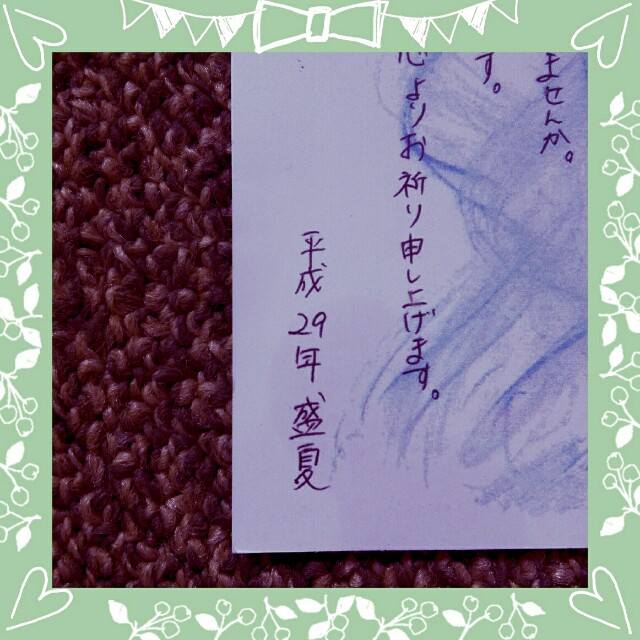 ませんか。
す。
心よりお祈り申し上げます。
平成29年 盛夏